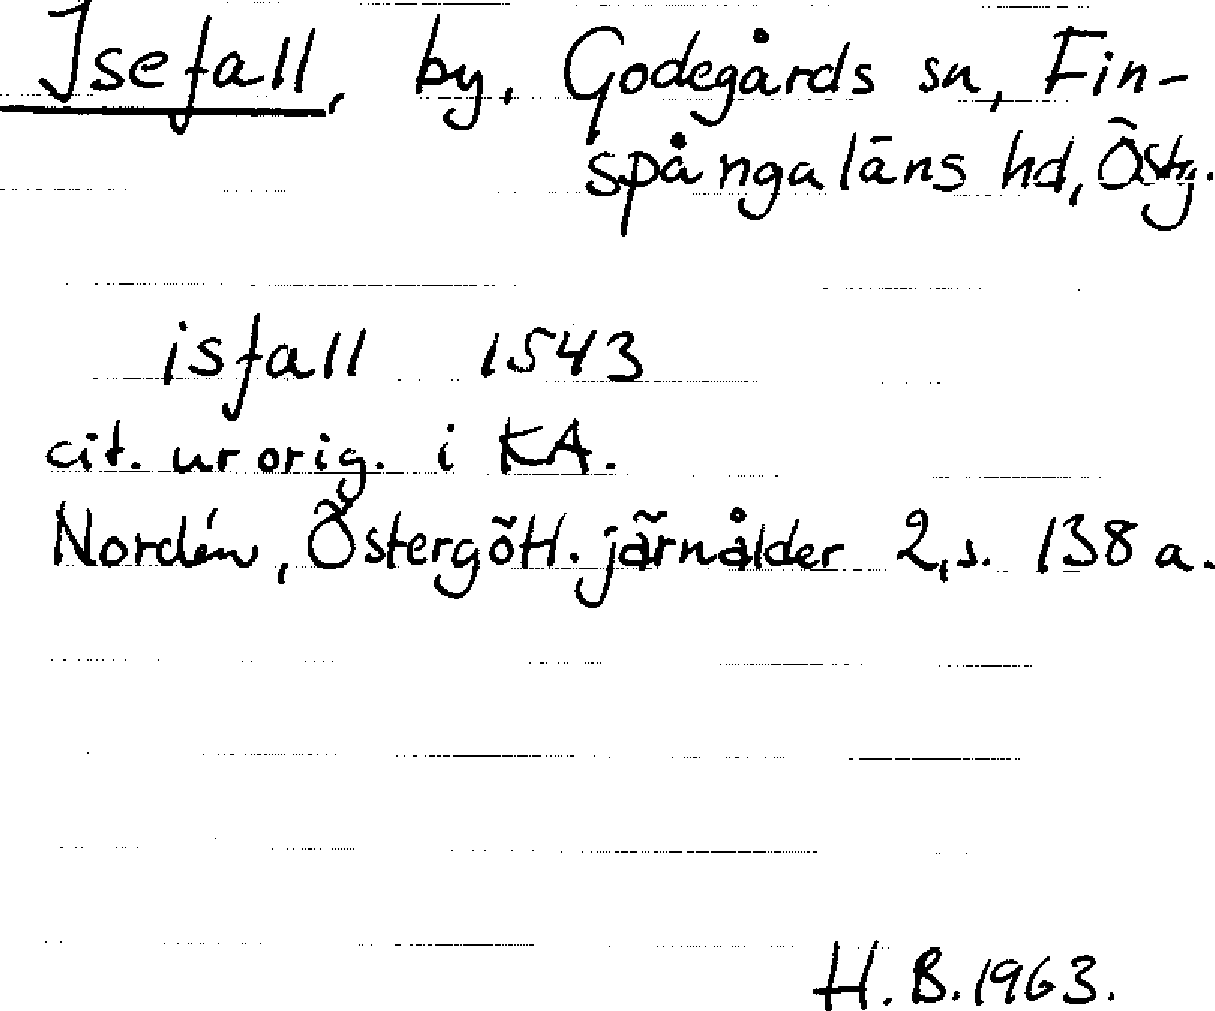 Isefall, by. Godegårds sn, Fin-
spångaläns hd, Östg.
isfall 1543
cit. ur orig. i KA.
Nordén, Östergötl. järnålder 2, s. 138 a.
H. B. 1963.